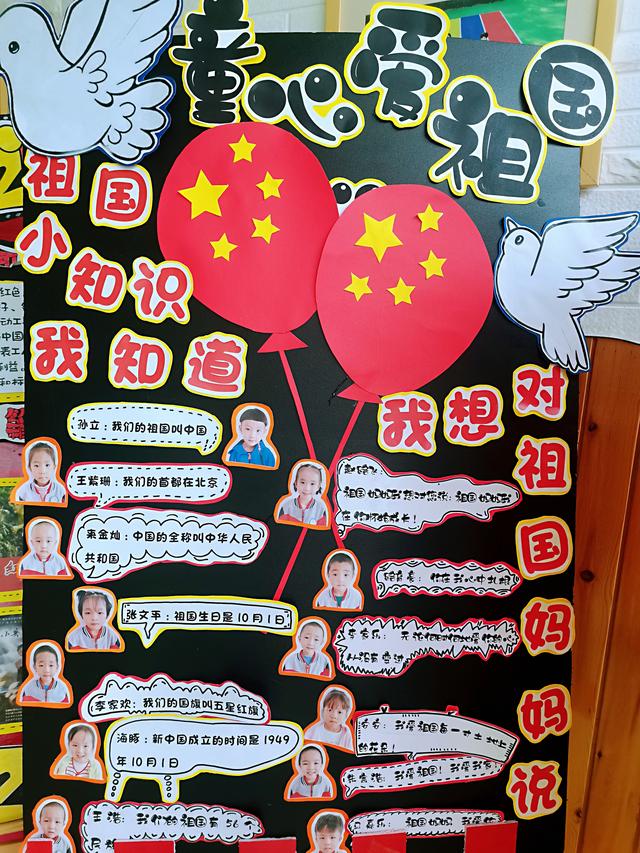 童心爱祖国
祖国
小知识
我知道
孙立：我们的祖国叫中国
王紫珊：我们的首都在北京
来金灿：中国的全称叫中华人民
共和国
张文平：祖国生日是10月1日
李家欢：我们的国旗叫五星红旗
海豚：新中国成立的时间是1949
年10月1日
王浩：我们的祖国有56个
我想对祖国妈妈说
祖国妈妈我想对您说：祖国妈妈我
在你怀抱成长！
你在我心中扎根
从没有变过
我爱祖国每一寸土地上
的花朵！
我爱祖国！我爱我家！
祖国妈妈 我爱你